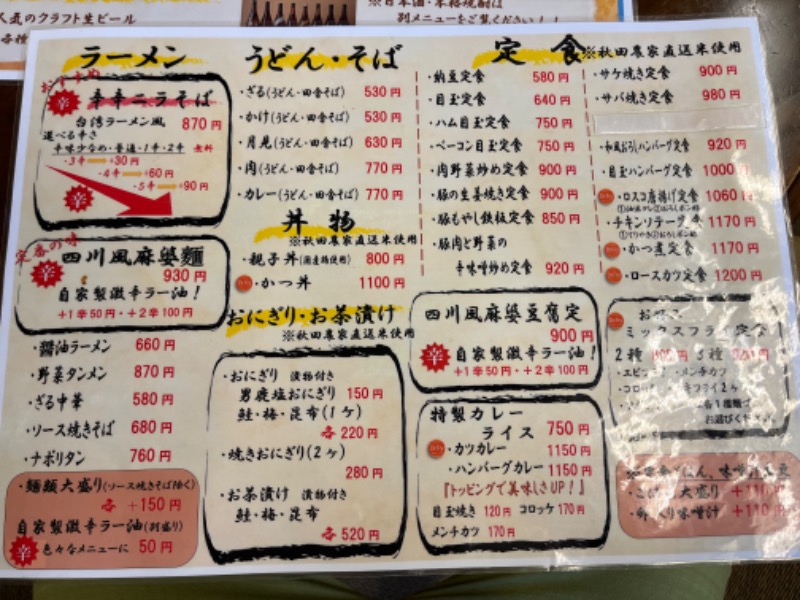 人気のクラフト生ビール
各種
※日本酒・本格焼酎は
別メニューをご覧ください！！
ラーメン
おすすめ
辛 辛辛ニラそば
台湾ラーメン風 870円
選べる辛さ
辛味少なめ・普通・1辛・2辛 無料
・3辛 +30円
・4辛 +60円
・5辛 +90円
辛
定番の味
辛 四川風麻婆麺
930円
自家製激辛ラー油！
+1辛50円・+2辛100円
・醤油ラーメン 660円
・野菜タンメン 870円
・ざる中華 580円
・ソース焼きそば 680円
・ナポリタン 760円
・麺類大盛り(ソース焼きそば除く)
各 +150円
自家製激辛ラー油(別盛り)
辛 色々なメニューに 50円
うどん・そば
・ざる(うどん・田舎そば) 530円
・かけ(うどん・田舎そば) 530円
・月見(うどん・田舎そば) 630円
・肉(うどん・田舎そば) 770円
・カレー(うどん・田舎そば) 770円
丼物
※秋田農家直送米使用
・親子丼(国産鶏使用) 800円
・かつ丼 1100円
おにぎり・お茶漬け
※秋田農家直送米使用
・おにぎり 漬物付き
男鹿塩おにぎり 150円
鮭・梅・昆布(1ヶ)
各220円
・焼きおにぎり(2ヶ)
280円
・お茶漬け 漬物付き
鮭・梅・昆布
各520円
定食 ※秋田農家直送米使用
・納豆定食 580円
・目玉定食 640円
・ハム目玉定食 750円
・ベーコン目玉定食 750円
・肉野菜炒め定食 900円
・豚の生姜焼き定食 900円
・豚もやし鉄板定食 850円
・豚肉と野菜の
辛味噌炒め定食 920円
四川風麻婆豆腐定
900円
辛 自家製激辛ラー油！
+1辛50円・+2辛100円
特製カレー
ライス 750円
・カツカレー 1150円
・ハンバーグカレー 1150円
『トッピングで美味しさUP！』
目玉焼き 120円 コロッケ 170円
メンチカツ 170円
・サケ焼き定食 900円
・サバ焼き定食 980円
・和風おろしハンバーグ定食 920円
・目玉ハンバーグ定食 1000円
・ロスコ唐揚げ定食 1060円
・チキンソテー定食 1170円
・かつ煮定食 1170円
・ロースカツ定食 1200円
ミックスフライ定食
2種 3種
・メンチカツ
フライ2ヶ
お選びください
大盛り +110円
味噌汁 +110円